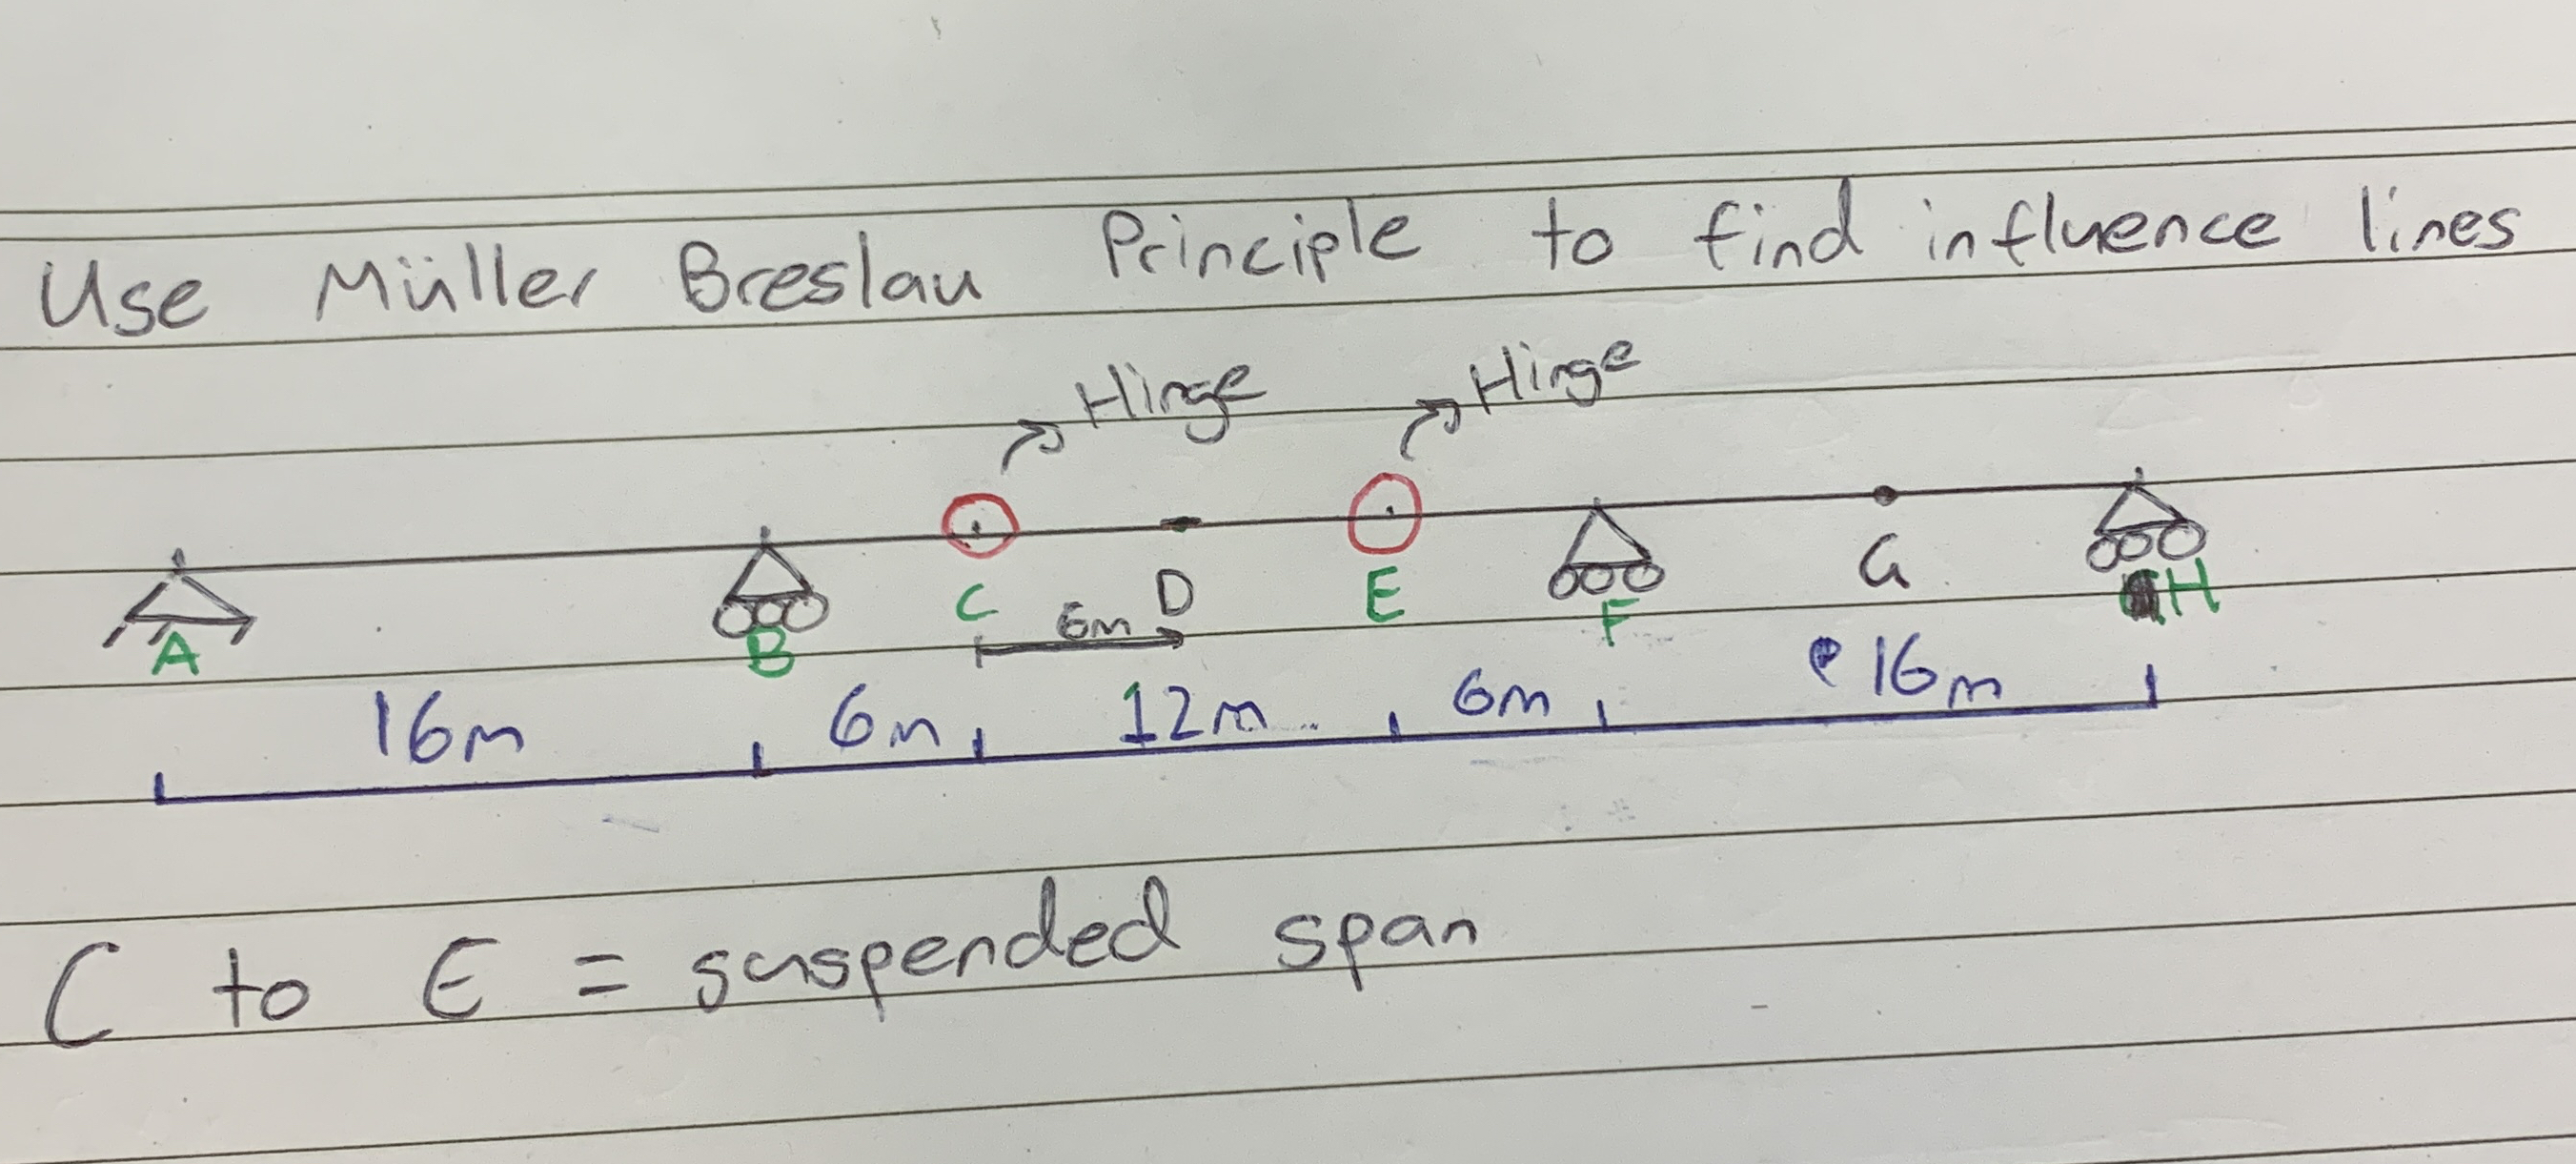 Use Müller Breslau Principle to find influence lines
Hinge Hinge
A B C D E F G H
6m
16m 6m 12m 6m 16m
C to E = suspended span